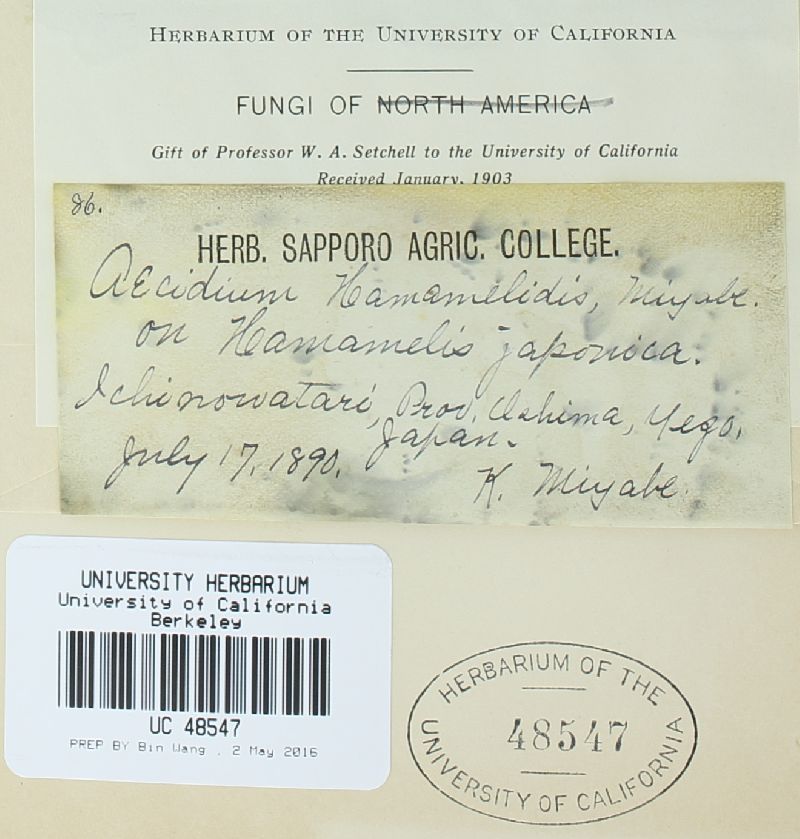 HERBARIUM OF THE UNIVERSITY OF CALIFORNIA
FUNGI OF NORTH AMERICA
Gift of Professor W. A. Setchell to the University of California
Received January, 1903
86.
HERB. SAPPORO AGRIC. COLLEGE.
Aecidium Hamamelidis, Miyabe.
on Hamamelis japonica.
Ichinowatari, Prov. Oshima, Yezo,
Japan.
July 17, 1890.
K. Miyabe.
UNIVERSITY HERBARIUM
University of California
Berkeley
UC 48547
PREP BY Bin Wang . 2 May 2016
HERBARIUM OF THE
48547
UNIVERSITY OF CALIFORNIA